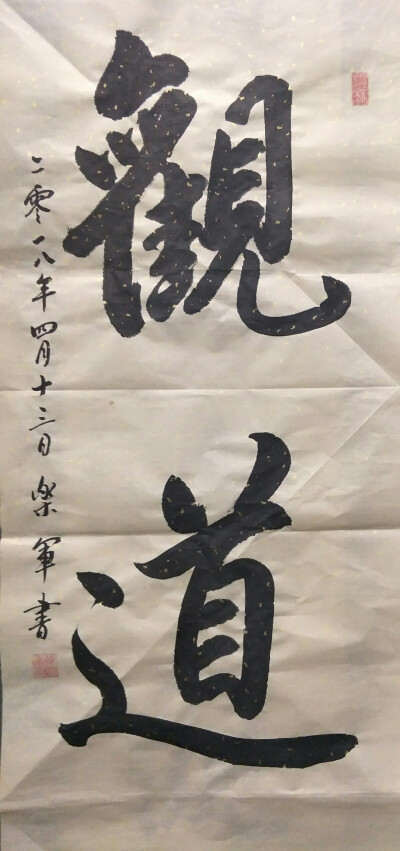 觀道
二零一八年四月十三日 樂軍書